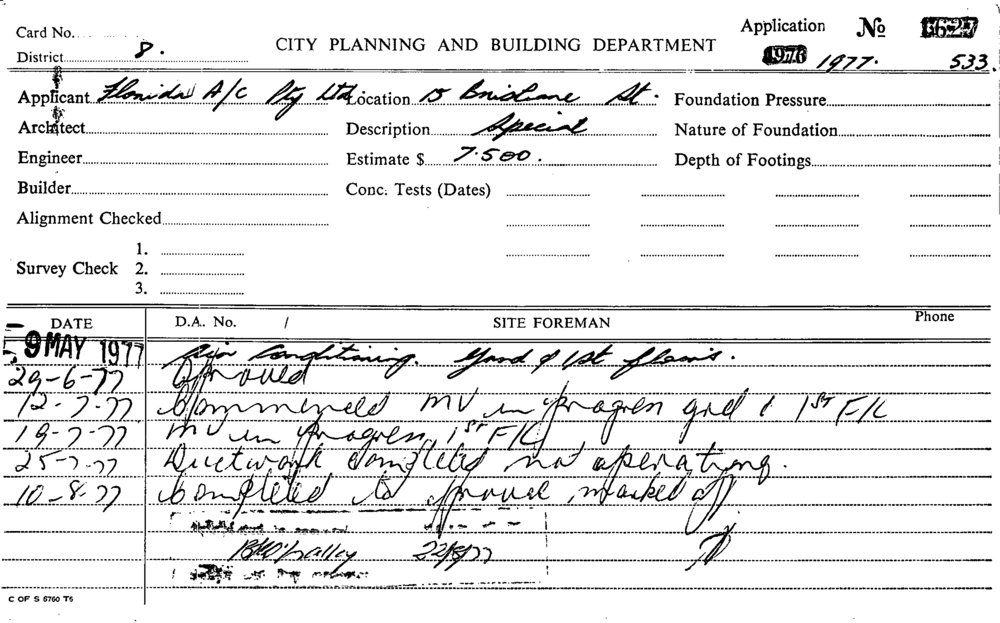 Card No.
Application No 6627
District 8.
CITY PLANNING AND BUILDING DEPARTMENT
1976 1977. 533.
Applicant Florida A/C Pty Ltd Location 15 Brisbane St. Foundation Pressure
Architect Description Special Nature of Foundation
Engineer Estimate $ 7.500. Depth of Footings
Builder Conc. Tests (Dates)
Alignment Checked
1.
Survey Check 2.
3.
DATE D.A. No. / SITE FOREMAN Phone
9 MAY 1977 Air Conditioning. & 1st floors.
29-6-77 Approved
12-7-77 Commenced MV in progress grd & 1ST F/C
19-7-77 MV in progress, 1ST F/C
25-7-77 Ductwork completed not operating.
10-8-77 Completed to approval, marked off
22/8/77
C OF S 6760 T5